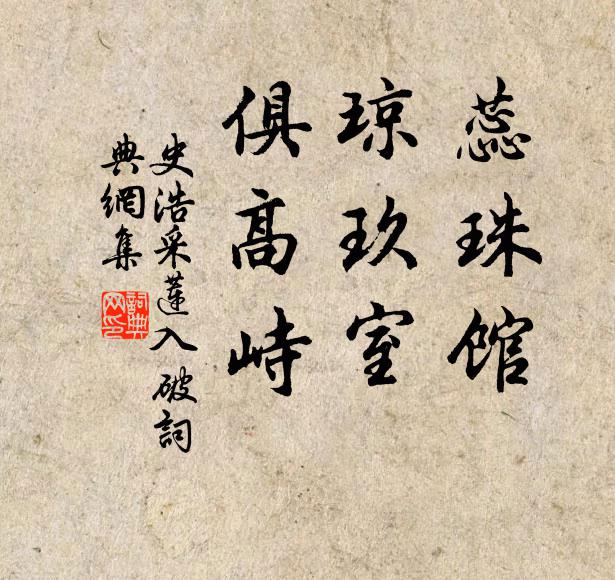 蕊珠馆
琼玖室
俱高峙
史浩采莲入破词
典網集
詞典網印